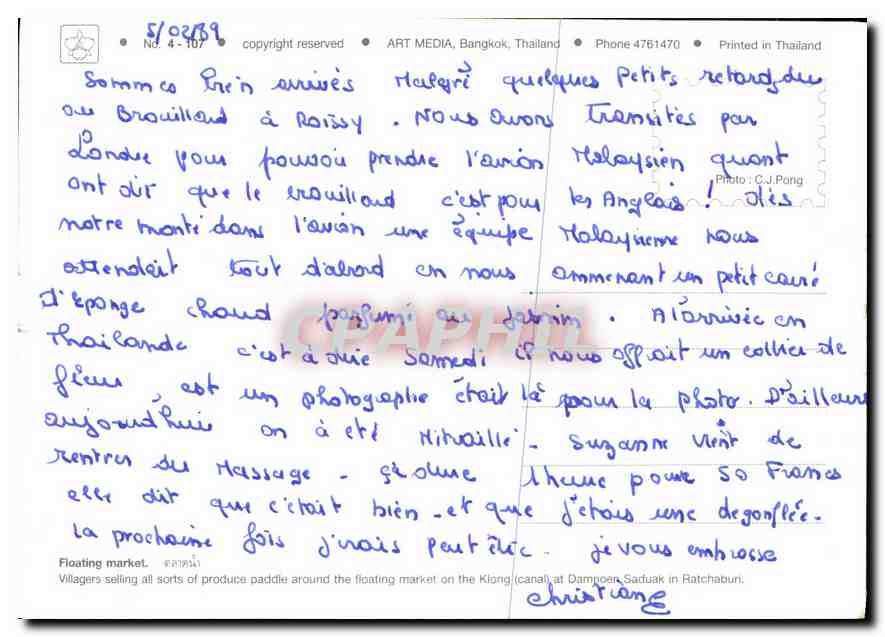 5/02/89
No. 4 - 107 • copyright reserved • ART MEDIA, Bangkok, Thailand • Phone 4761470 • Printed in Thailand
Sommes bien arrivés Malgré quelques Petits retards du
au Brouillard à Roissy. Nous avons Transités par
Londre pour pouvoir prendre l'avion Malaysien quant
Photo : C.J.Pong
ont dit que le brouillard c'est pour les Anglais! dès
notre monté dans l'avion une équipe Malaysienne nous
attendait tout d'abord en nous ammenant un petit carré
d'éponge chaud parfumé au Jasmin. A l'arrivée en
Thailande c'est à dire Samedi il nous offrait un collier de
fleur est un photographe était là pour la photo. D'ailleurs
aujourd'hui on à été Mitraillé - Suzanne vient de
rentrer du Massage - çà dure 1 heure pour 50 Francs
elle dit que c'était bien - et que j'étais une degonflée -
la prochaine fois j'irais peut être. je vous embrasse
Floating market. ตลาดน้ำ
Villagers selling all sorts of produce paddle around the floating market on the Klong (canal) at Damnoen Saduak in Ratchaburi.
Christiane
CPAPHIL